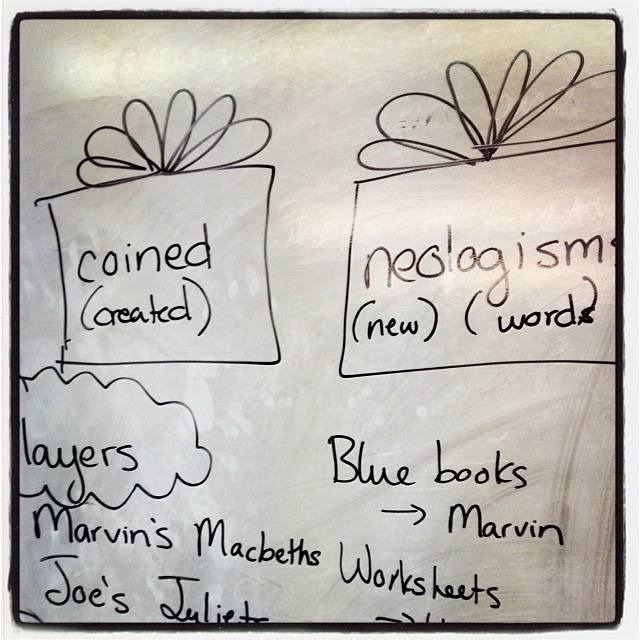 coined
(created)
neologisms
(new) (words)
layers
Marvin's Macbeths
Joe's Juliets
Blue books
→ Marvin
Worksheets